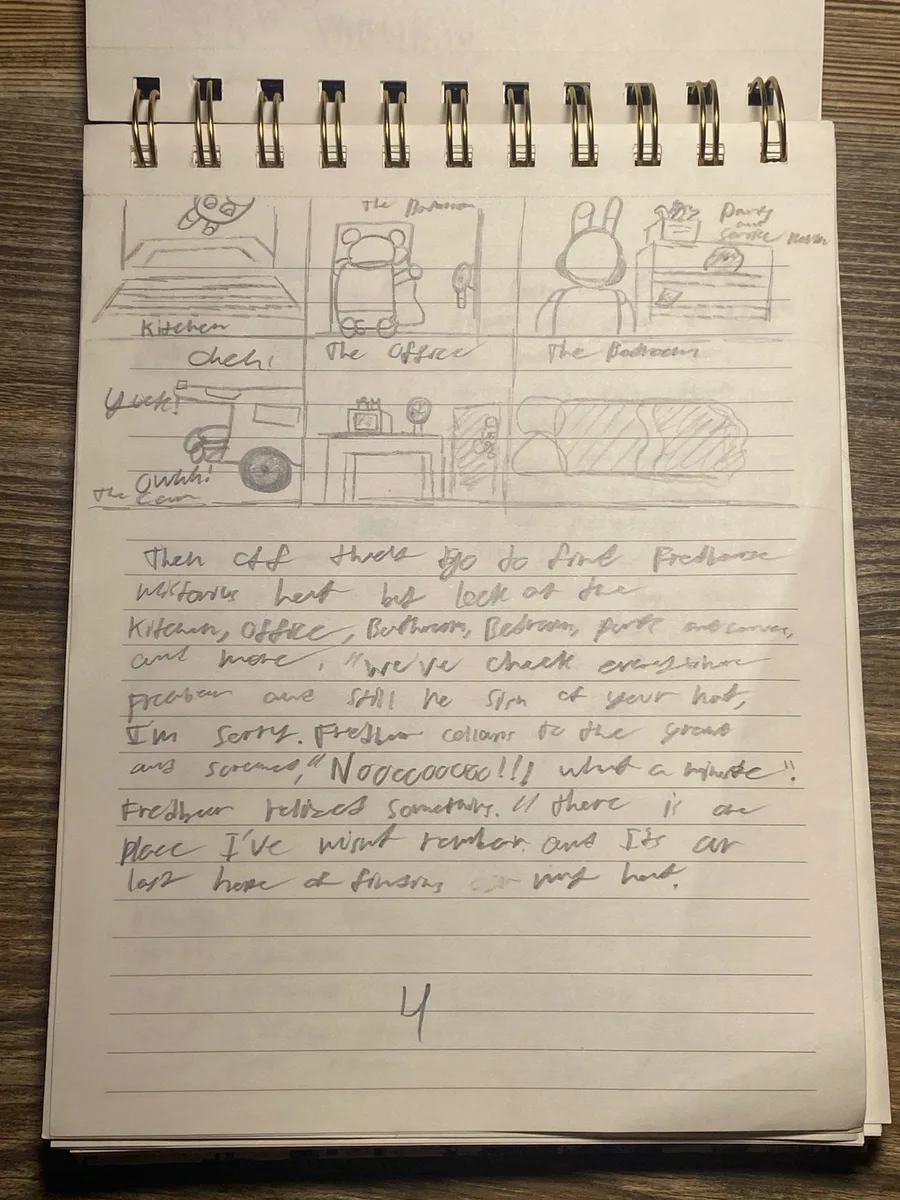 The Bathroom
Parts
and
Service
Kitchen
Oheh!
The Office
The Bedroom
Yuck!
Owhh!
The
Then off they go to find Fredbear
hat but look at the
Kitchen, Office, Bathroom, Bedroom, parts and
and more. "We've check everywhere
Fredbear and still no sign of your hat,
I'm sorry. Fredbear collaps to the
and screamed, "Nooooooooo!!! what a minute".
Fredbear relized something. "there is one
place I've and It's our
last hope of finding my hat.
4